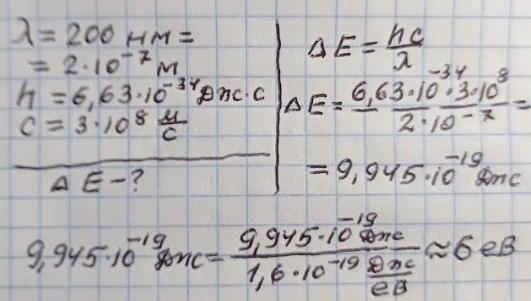 λ = 200 нм =
= 2·10⁻⁷ м
h = 6,63·10⁻³⁴ Дж·с
c = 3·10⁸ м/с
ΔE - ?
ΔE = hc/λ
ΔE = 6,63·10⁻³⁴·3·10⁸/2·10⁻⁷ =
= 9,945·10⁻¹⁹ Дж
9,945·10⁻¹⁹ Дж = 9,945·10⁻¹⁹ Дж/1,6·10⁻¹⁹ Дж/еВ ≈ 6 еВ